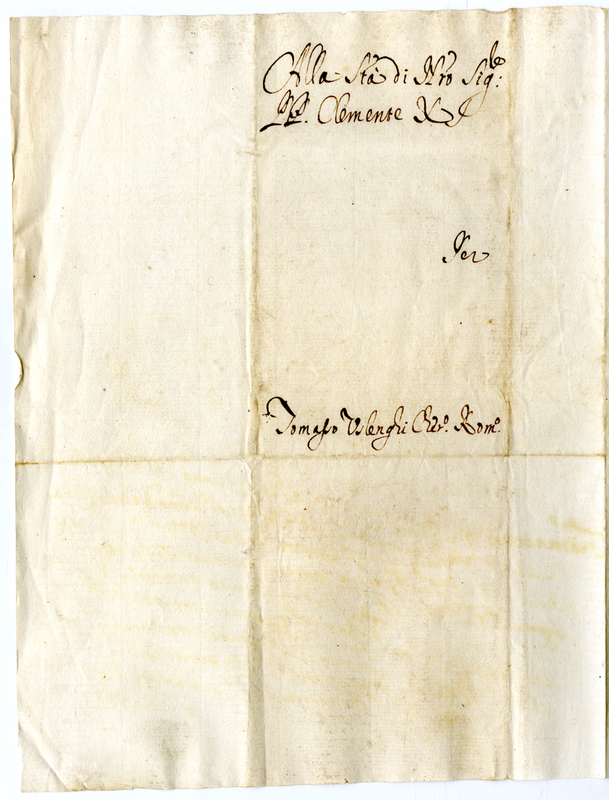 Alla Stà di Nro Sigre:
PP. Clemente X
Per
Tomasso Chierº. Romº.